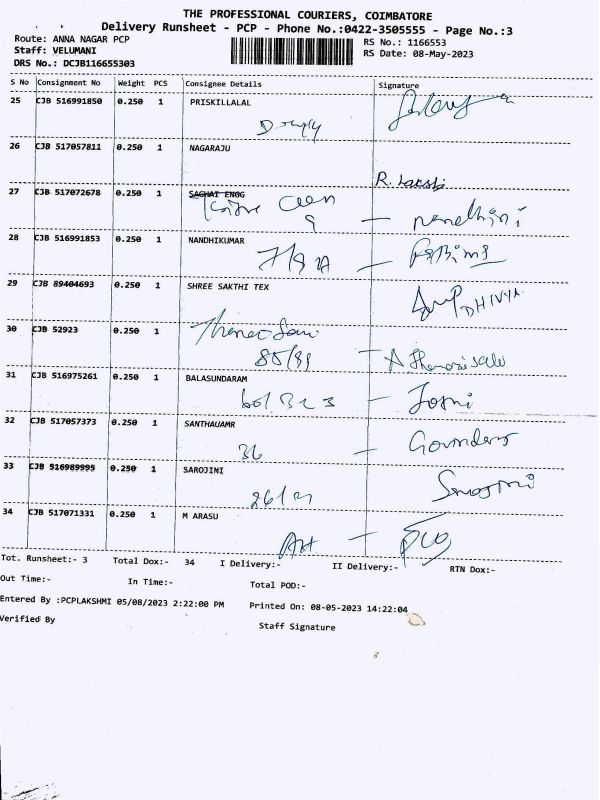 THE PROFESSIONAL COURIERS, COIMBATORE
Delivery Runsheet - PCP - Phone No.:0422-3505555 - Page No.:3
Route: ANNA NAGAR PCP RS No.: 1166553
Staff: VELUMANI RS Date: 08-May-2023
DRS No.: DCJB116655303
S No Consignment No Weight PCS Consignee Details Signature
25 CJB 516991850 0.250 1 PRISKILLALAL
26 CJB 517057811 0.250 1 NAGARAJU
R. Lakshi
27 CJB 517072678 0.250 1 SAGHAI ENGG
9 - nandhini
28 CJB 516991853 0.250 1 NANDHIKUMAR
- Fathima
29 CJB 89404693 0.250 1 SHREE SAKTHI TEX
DHIVYA
30 CJB 52923 0.250 1
85/89 -
31 CJB 516975261 0.250 1 BALASUNDARAM
-
32 CJB 517057373 0.250 1 SANTHAUAMR
36 -
33 CJB 516989995 0.250 1 SAROJINI
Sarojini
34 CJB 517071331 0.250 1 M ARASU
-
Tot. Runsheet:- 3 Total Dox:- 34 I Delivery:- II Delivery:- RTN Dox:-
Out Time:- In Time:- Total POD:-
Entered By :PCPLAKSHMI 05/08/2023 2:22:00 PM Printed On: 08-05-2023 14:22:04
Verified By Staff Signature